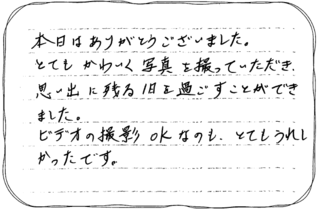 本日はありがとうございました。
とてもかわいく写真を撮っていただき、
思い出に残る1日を過ごすことができ
ました。
ビデオの撮影OKなのも、とてもうれし
かったです。